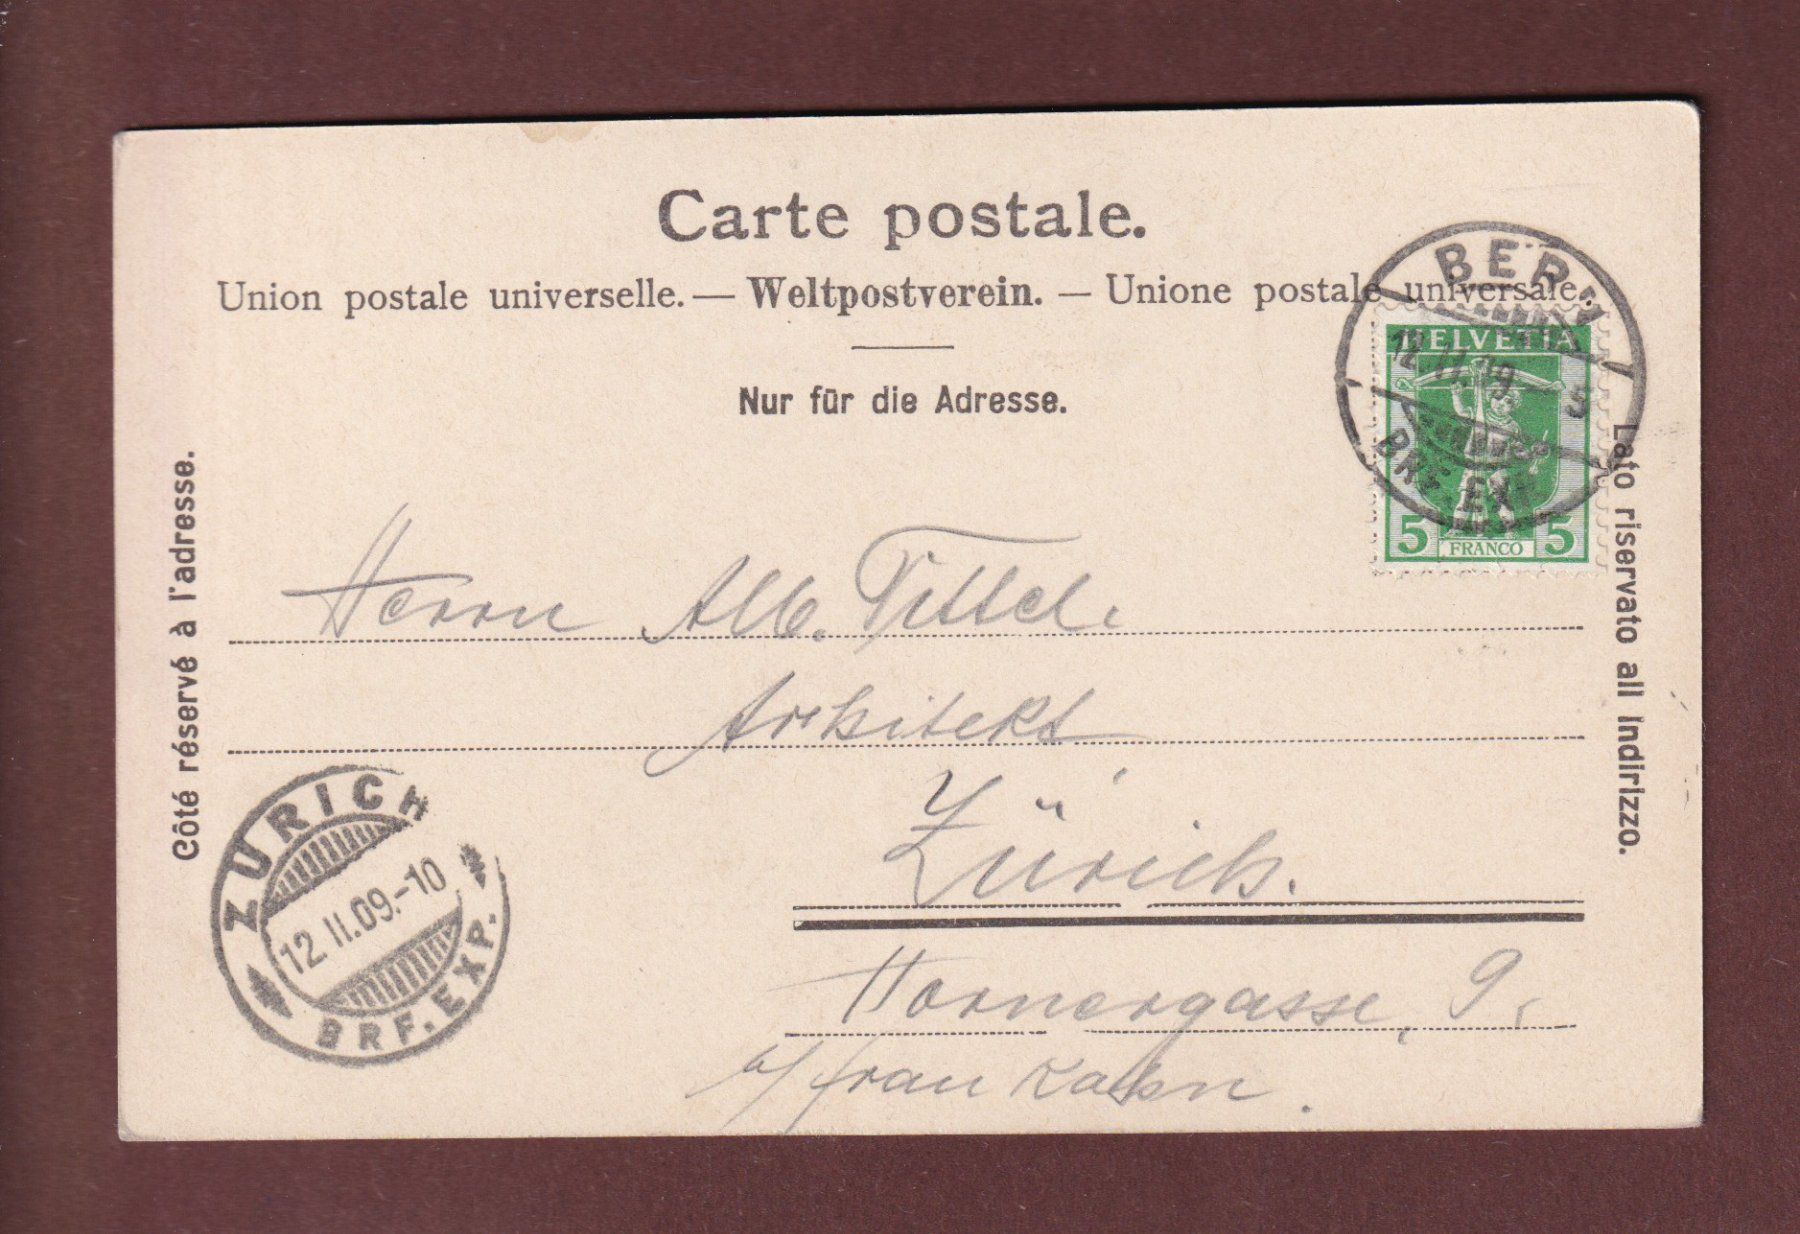 Carte postale.
Union postale universelle. — Weltpostverein. — Unione postale universale.
Nur für die Adresse.
Côté réservé à l'adresse.
Lato riservato all Indirizzo.
BERN
12.II.09 5
BRF. EXP.
HELVETIA
5 FRANCO 5
Herrn Alb. Tittel.
Arkitekt
Zürich.
Hornergasse, 9.
b/ Frau Kahn.
ZÜRICH
12.II.09.-10
BRF. EXP.